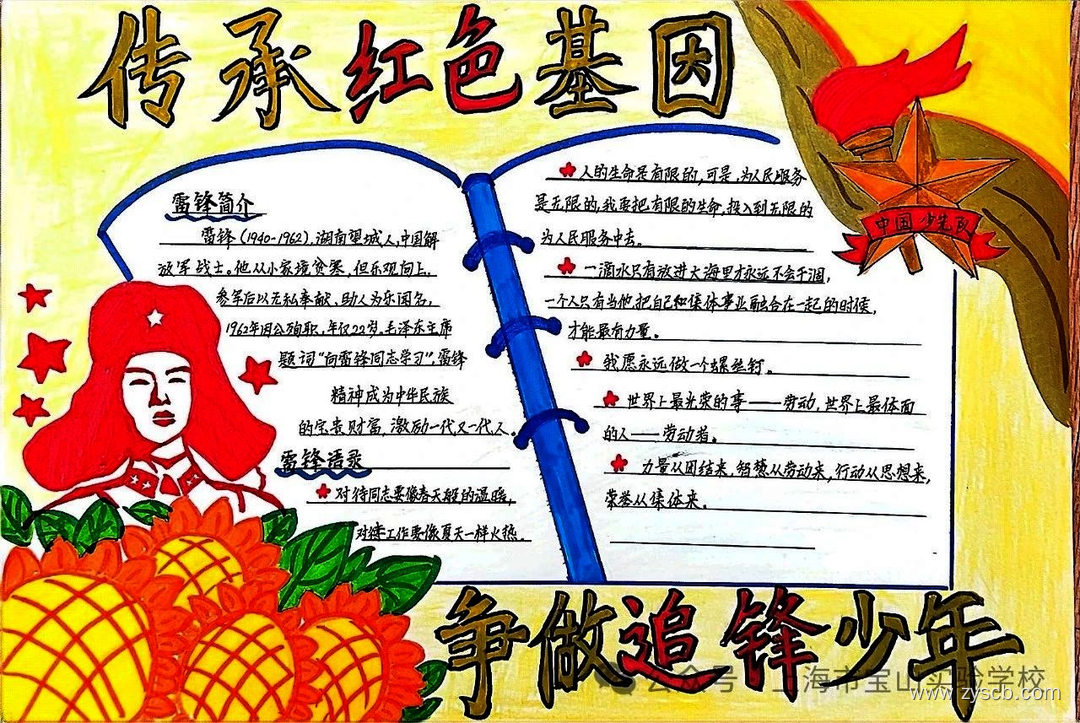 传承红色基因
雷锋简介
雷锋(1940-1962),湖南望城人,中国解
放军战士。他从小家境贫寒,但乐观向上,
参军后以无私奉献、助人为乐闻名,
1962年因公殉职,年仅22岁,毛泽东主席
题词“向雷锋同志学习”,雷锋
精神成为中华民族
的宝贵财富,激励一代又一代人。
雷锋语录
对待同志要像春天般的温暖,
对待工作要像夏天一样火热。
人的生命是有限的,可是,为人民服务
是无限的,我要把有限的生命,投入到无限的
为人民服务中去。
一滴水只有放进大海里才永远不会干涸,
一个人只有当他把自己和集体事业融合在一起的时候,
才能最有力量。
我愿永远做一个螺丝钉。
世界上最光荣的事——劳动,世界上最体面
的人——劳动者。
力量从团结来,智慧从劳动来,行动从思想来,
荣誉从集体来。
中国少先队
争做追锋少年
公众号·上海市宝山实验学校
www.zyscb.com